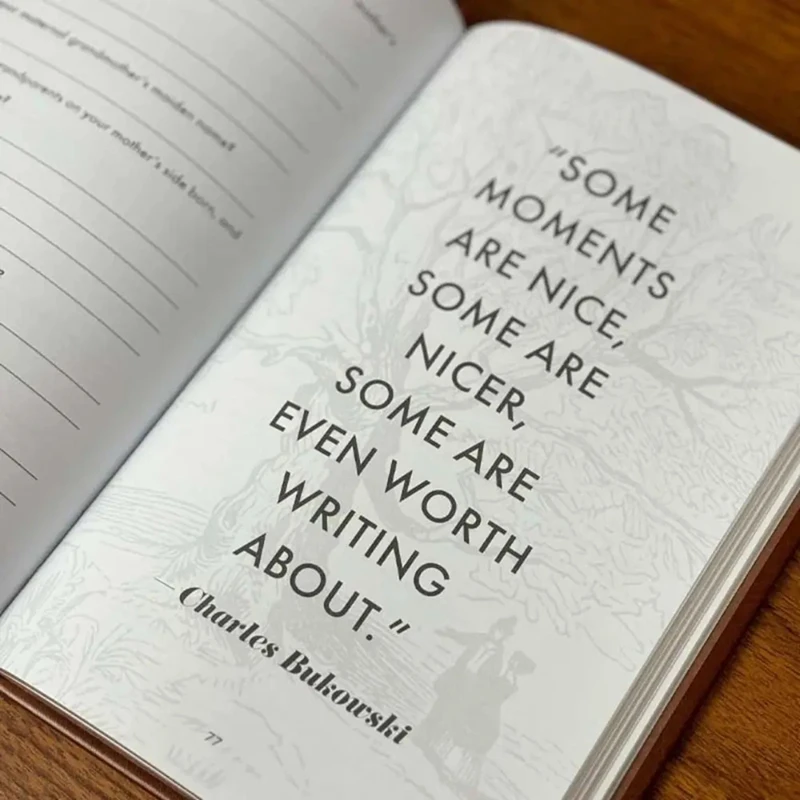 mother's
maternal grandmother's maiden name?
grandparents on your mother's side born, and
“SOME
MOMENTS
ARE NICE,
SOME ARE
NICER,
SOME ARE
EVEN WORTH
WRITING
ABOUT.”
— Charles Bukowski
77